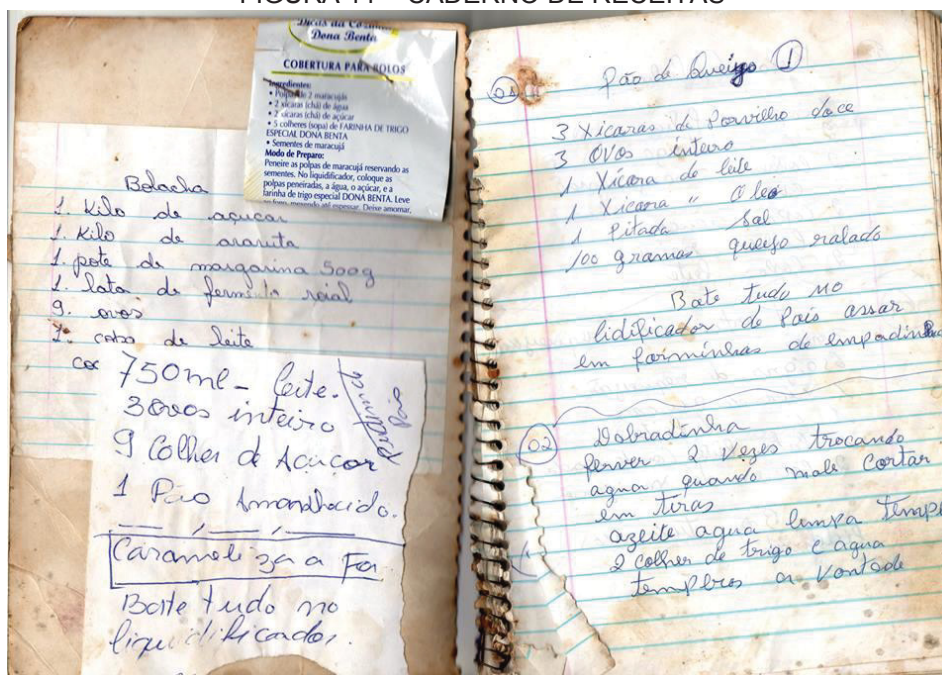 FIGURA 11 – CADERNO DE RECEITAS
Dicas da Cozinha
Dona Benta
COBERTURA PARA BOLOS
Ingredientes:
• Polpa de 2 maracujás
• 2 xícaras (chá) de água
• 2 xícaras (chá) de açúcar
• 5 colheres (sopa) de FARINHA DE TRIGO
ESPECIAL DONA BENTA
• Sementes de maracujá
Modo de Preparo:
Peneire as polpas de maracujá reservando as
sementes. No liquidificador, coloque as
polpas peneiradas, a água, o açúcar, e a
farinha de trigo especial DONA BENTA. Leve
ao fogo, mexendo até espessar. Deixe amornar,
Bolacha
1. Kilo de açucar
1. Kilo de araruta
1. pote de margarina 500g
1. lata de fermento roial
9. ovos
1. de leite
750ml - leite.
3 ovos inteiro
9 Colher de Acucar
1 Pão Amanhecido.
Pudim de
Pão
Caramelizar a For
Bate tudo no
liquidificador.
01 Pão de Queijo 1
3 Xicaras de Porvilho doce
3 Ovos inteiro
1 Xicara de leite
1 Xicara " Oleo
1 Pitada Sal
100 gramas queijo ralado
Bate tudo no
lidificador de Pois assar
em forminhas de empadinha
02 Dobradinha
ferver 2 Vezes trocando
agua quando mole Cortar
em tiras
azeite agua limpa Temp
2 colher de trigo e agua
temperos a Vontade